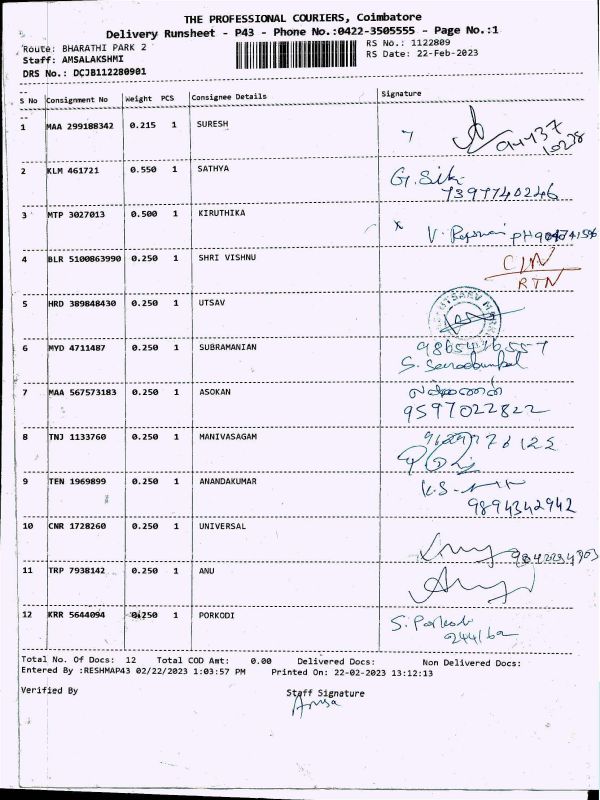 THE PROFESSIONAL COURIERS, Coimbatore
Delivery Runsheet - P43 - Phone No.:0422-3505555 - Page No.:1
Route: BHARATHI PARK 2 RS No.: 1122809
Staff: AMSALAKSHMI RS Date: 22-Feb-2023
DRS No.: DCJB112280901
S No Consignment No Weight PCS Consignee Details Signature
1 MAA 299188342 0.215 1 SURESH
2 KLM 461721 0.550 1 SATHYA
7397740246
3 MTP 3027013 0.500 1 KIRUTHIKA
4 BLR 5100863990 0.250 1 SHRI VISHNU
RTN
5 HRD 389848430 0.250 1 UTSAV
6 MYD 4711487 0.250 1 SUBRAMANIAN
7 MAA 567573183 0.250 1 ASOKAN
9597022822
8 TNJ 1133760 0.250 1 MANIVASAGAM
9 TEN 1969899 0.250 1 ANANDAKUMAR
9894342942
10 CNR 1728260 0.250 1 UNIVERSAL
11 TRP 7938142 0.250 1 ANU
12 KRR 5644094 0.250 1 PORKODI S. Porkodi
Total No. Of Docs: 12 Total COD Amt: 0.00 Delivered Docs: Non Delivered Docs:
Entered By :RESHMAP43 02/22/2023 1:03:57 PM Printed On: 22-02-2023 13:12:13
Verified By Staff Signature
Amsa